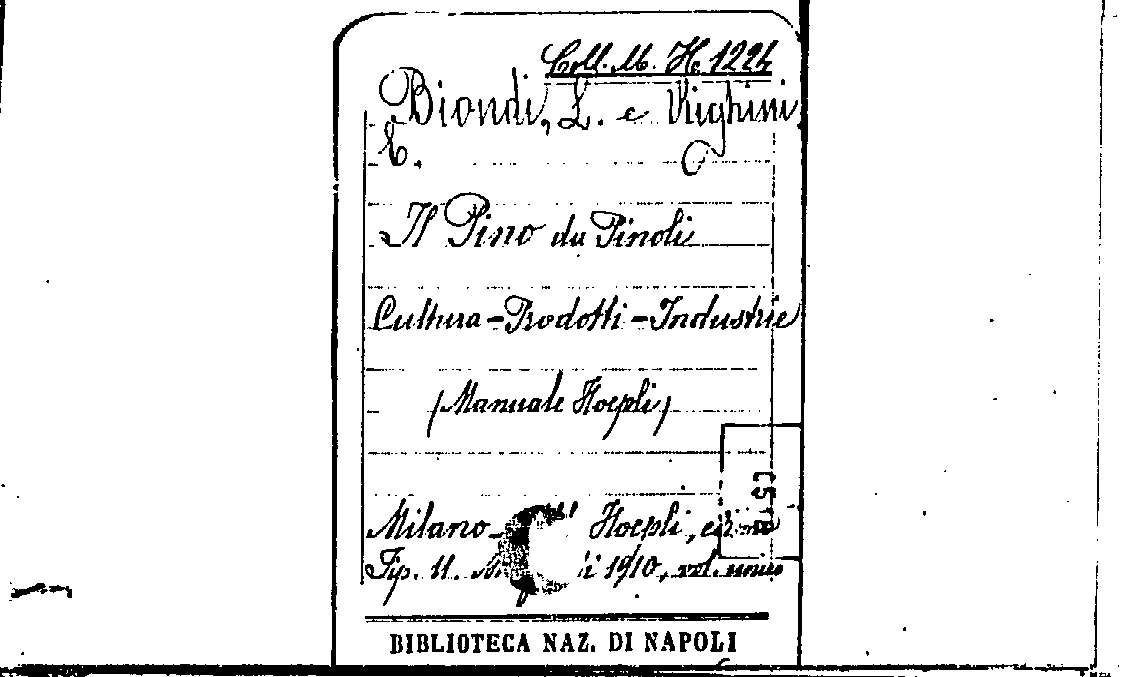 Coll. M. H. 1224
Biondi, L. e Righini
E.
Il Pino da Pinoli
Cultura - Prodotti - Industrie
(Manuale Hoepli)
Milano - Hoepli,
Tip. U. 1910, vol. unico
BIBLIOTECA NAZ. DI NAPOLI